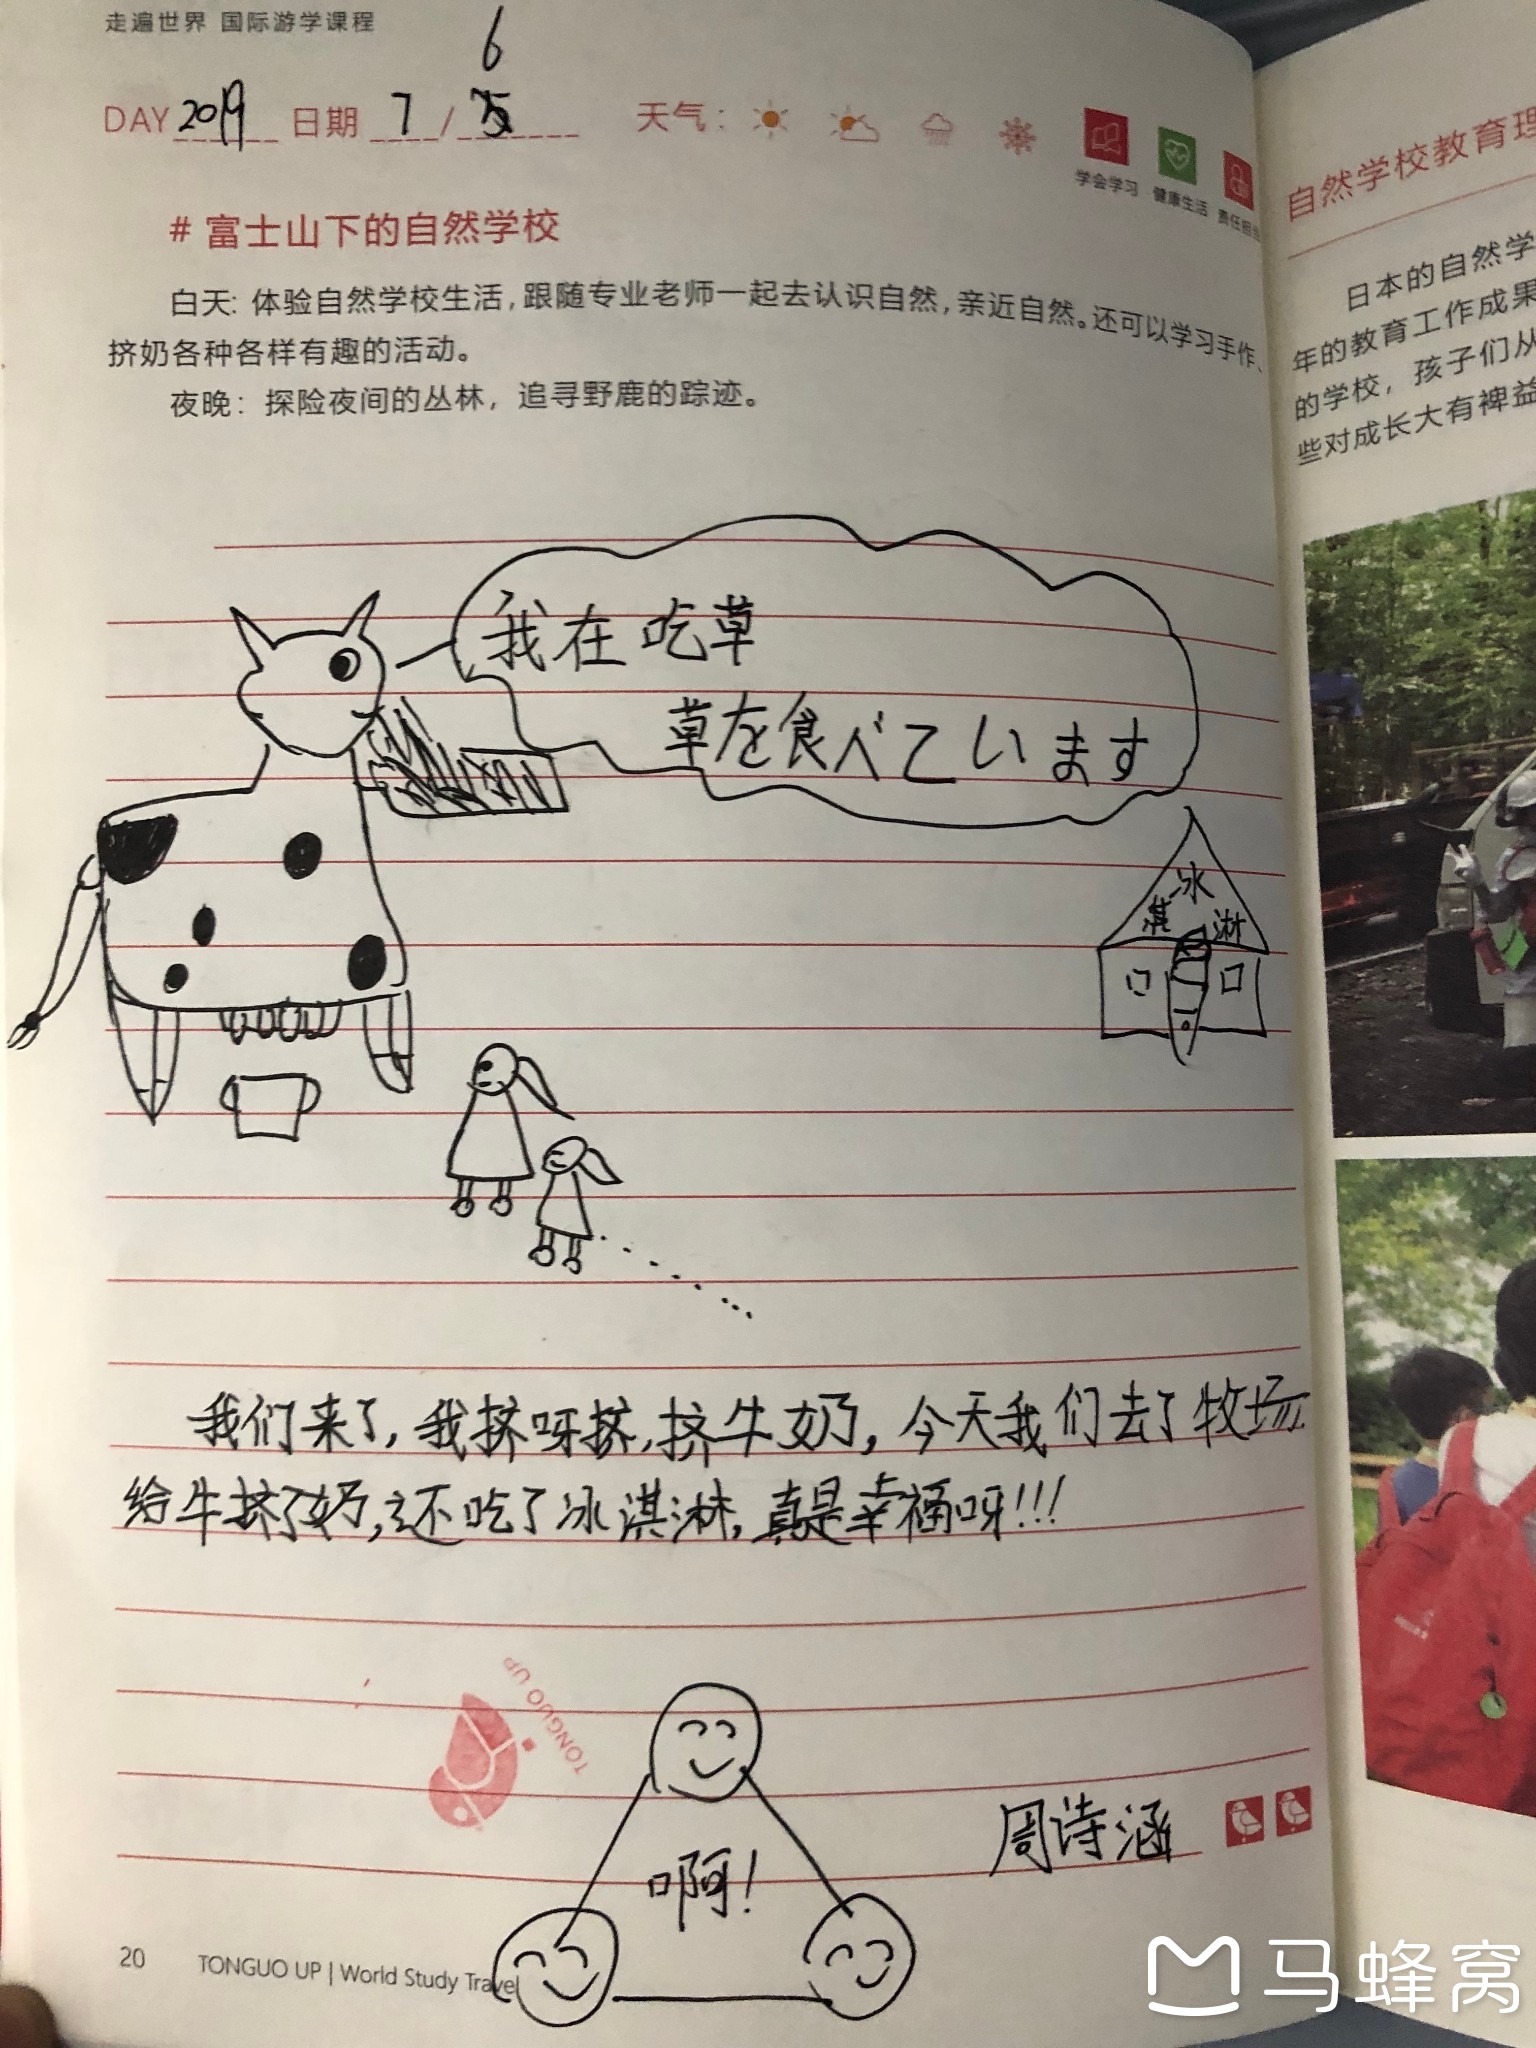 走遍世界 国际游学课程
6
DAY 2019 日期 7 / 天气：
学会学习 健康生活 责任担当
# 富士山下的自然学校
白天: 体验自然学校生活，跟随专业老师一起去认识自然，亲近自然。还可以学习手作、
挤奶各种各样有趣的活动。
夜晚：探险夜间的丛林，追寻野鹿的踪迹。
我在吃草
草を食べています
冰
淇 淋
我们来了，我挤呀挤，挤牛奶，今天我们去了牧场
给牛挤了奶，还吃了冰淇淋，真是幸福呀!!!
TONGUO UP
啊!
周诗涵
20 TONGUO UP | World Study Travel
自然学校教育理
日本的自然学
年的教育工作成果
的学校，孩子们从
些对成长大有裨益
马蜂窝